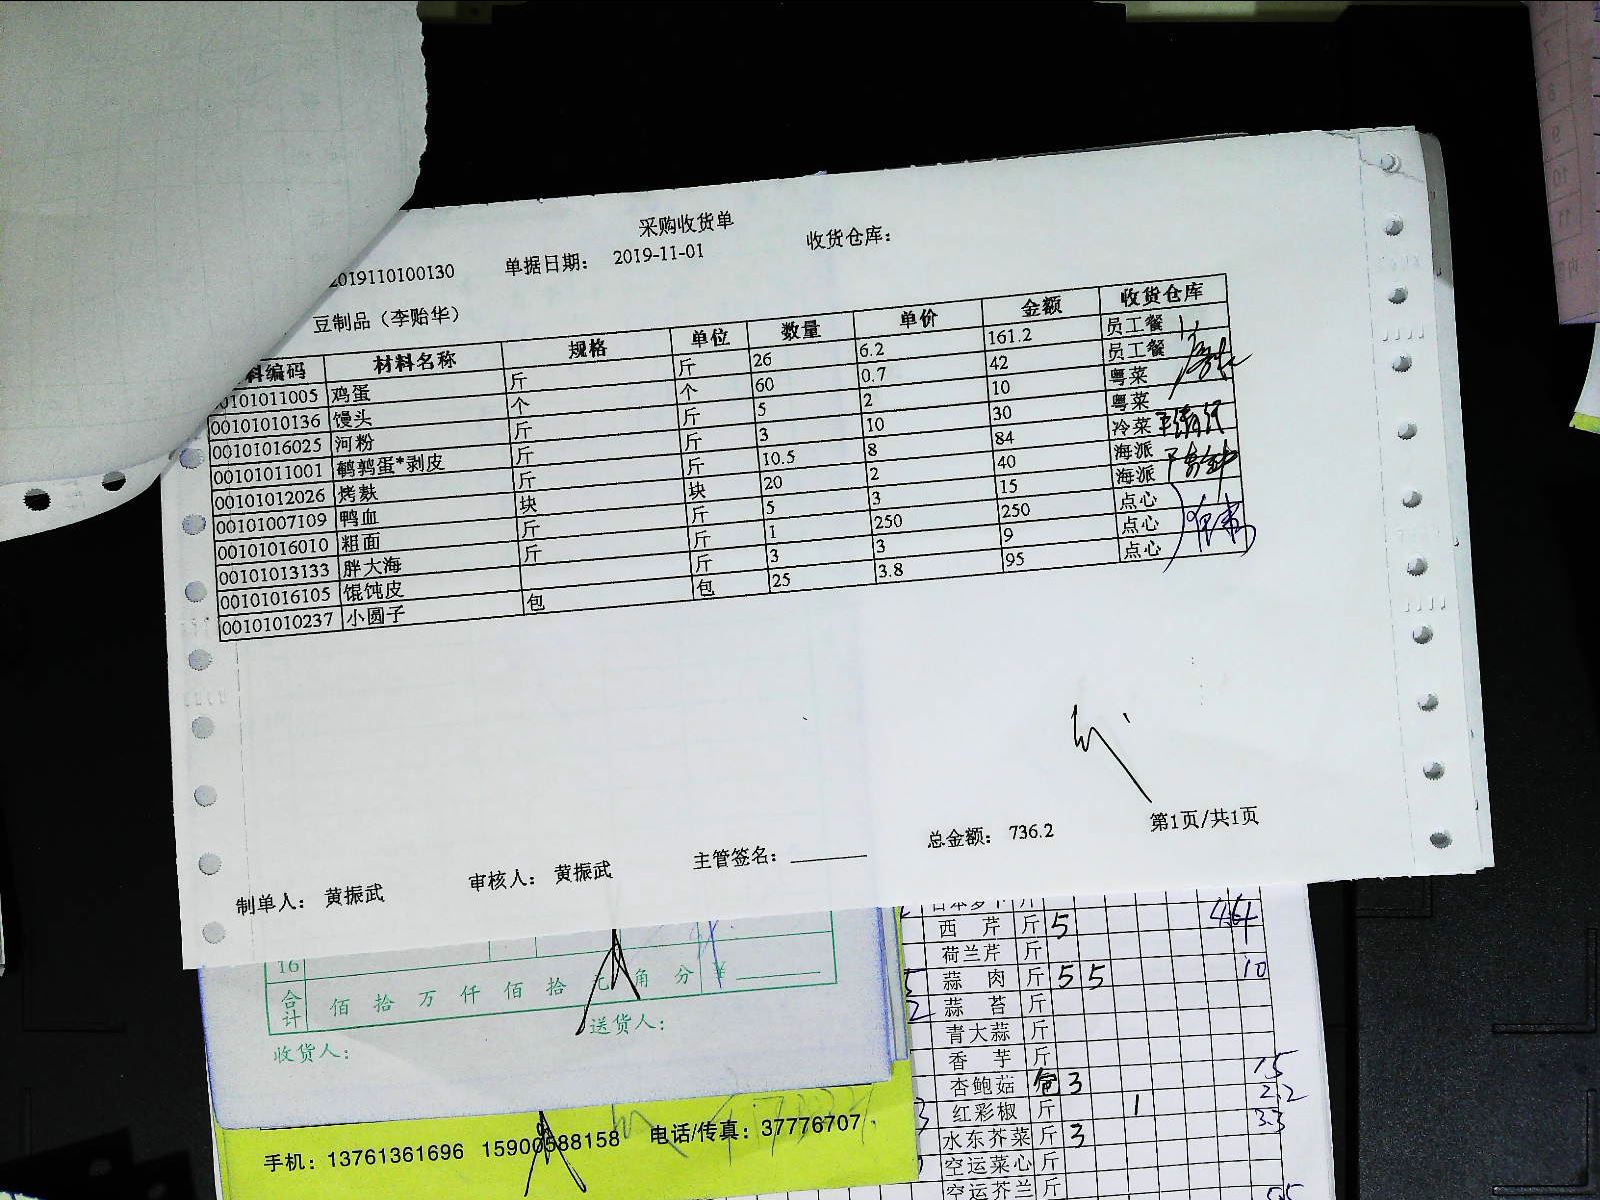 采购收货单
2019110100130 单据日期: 2019-11-01 收货仓库:
豆制品(李贻华)
料编码 材料名称 规格 单位 数量 单价 金额 收货仓库
00101011005 鸡蛋 斤 斤 26 6.2 161.2 员工餐
00101010136 馒头 个 个 60 0.7 42 员工餐
00101016025 河粉 斤 斤 5 2 10 粤菜
00101011001 鹌鹑蛋*剥皮 斤 斤 3 10 30 粤菜
00101012026 烤麸 斤 斤 10.5 8 84 冷菜
00101007109 鸭血 块 块 20 2 40 海派
00101016010 粗面 斤 斤 5 3 15 海派
00101013133 胖大海 斤 斤 1 250 250 点心
00101016105 馄饨皮 斤 3 3 9 点心
00101010237 小圆子 包 包 25 3.8 95 点心
总金额: 736.2 第1页/共1页
制单人: 黄振武 审核人: 黄振武 主管签名:
16
合计 佰 拾 万 仟 佰 拾 元 角 分 ¥
收货人: 送货人:
手机: 13761361696 15900588158 电话/传真: 37776707
西芹 斤 5
荷兰芹 斤
蒜肉 斤 5 5 10
蒜苔 斤
青大蒜 斤
香芋 斤
杏鲍菇 包 3 15
红彩椒 斤 1 2.2
水东芥菜 斤 3 3.3
空运菜心 斤
空运芥兰 斤